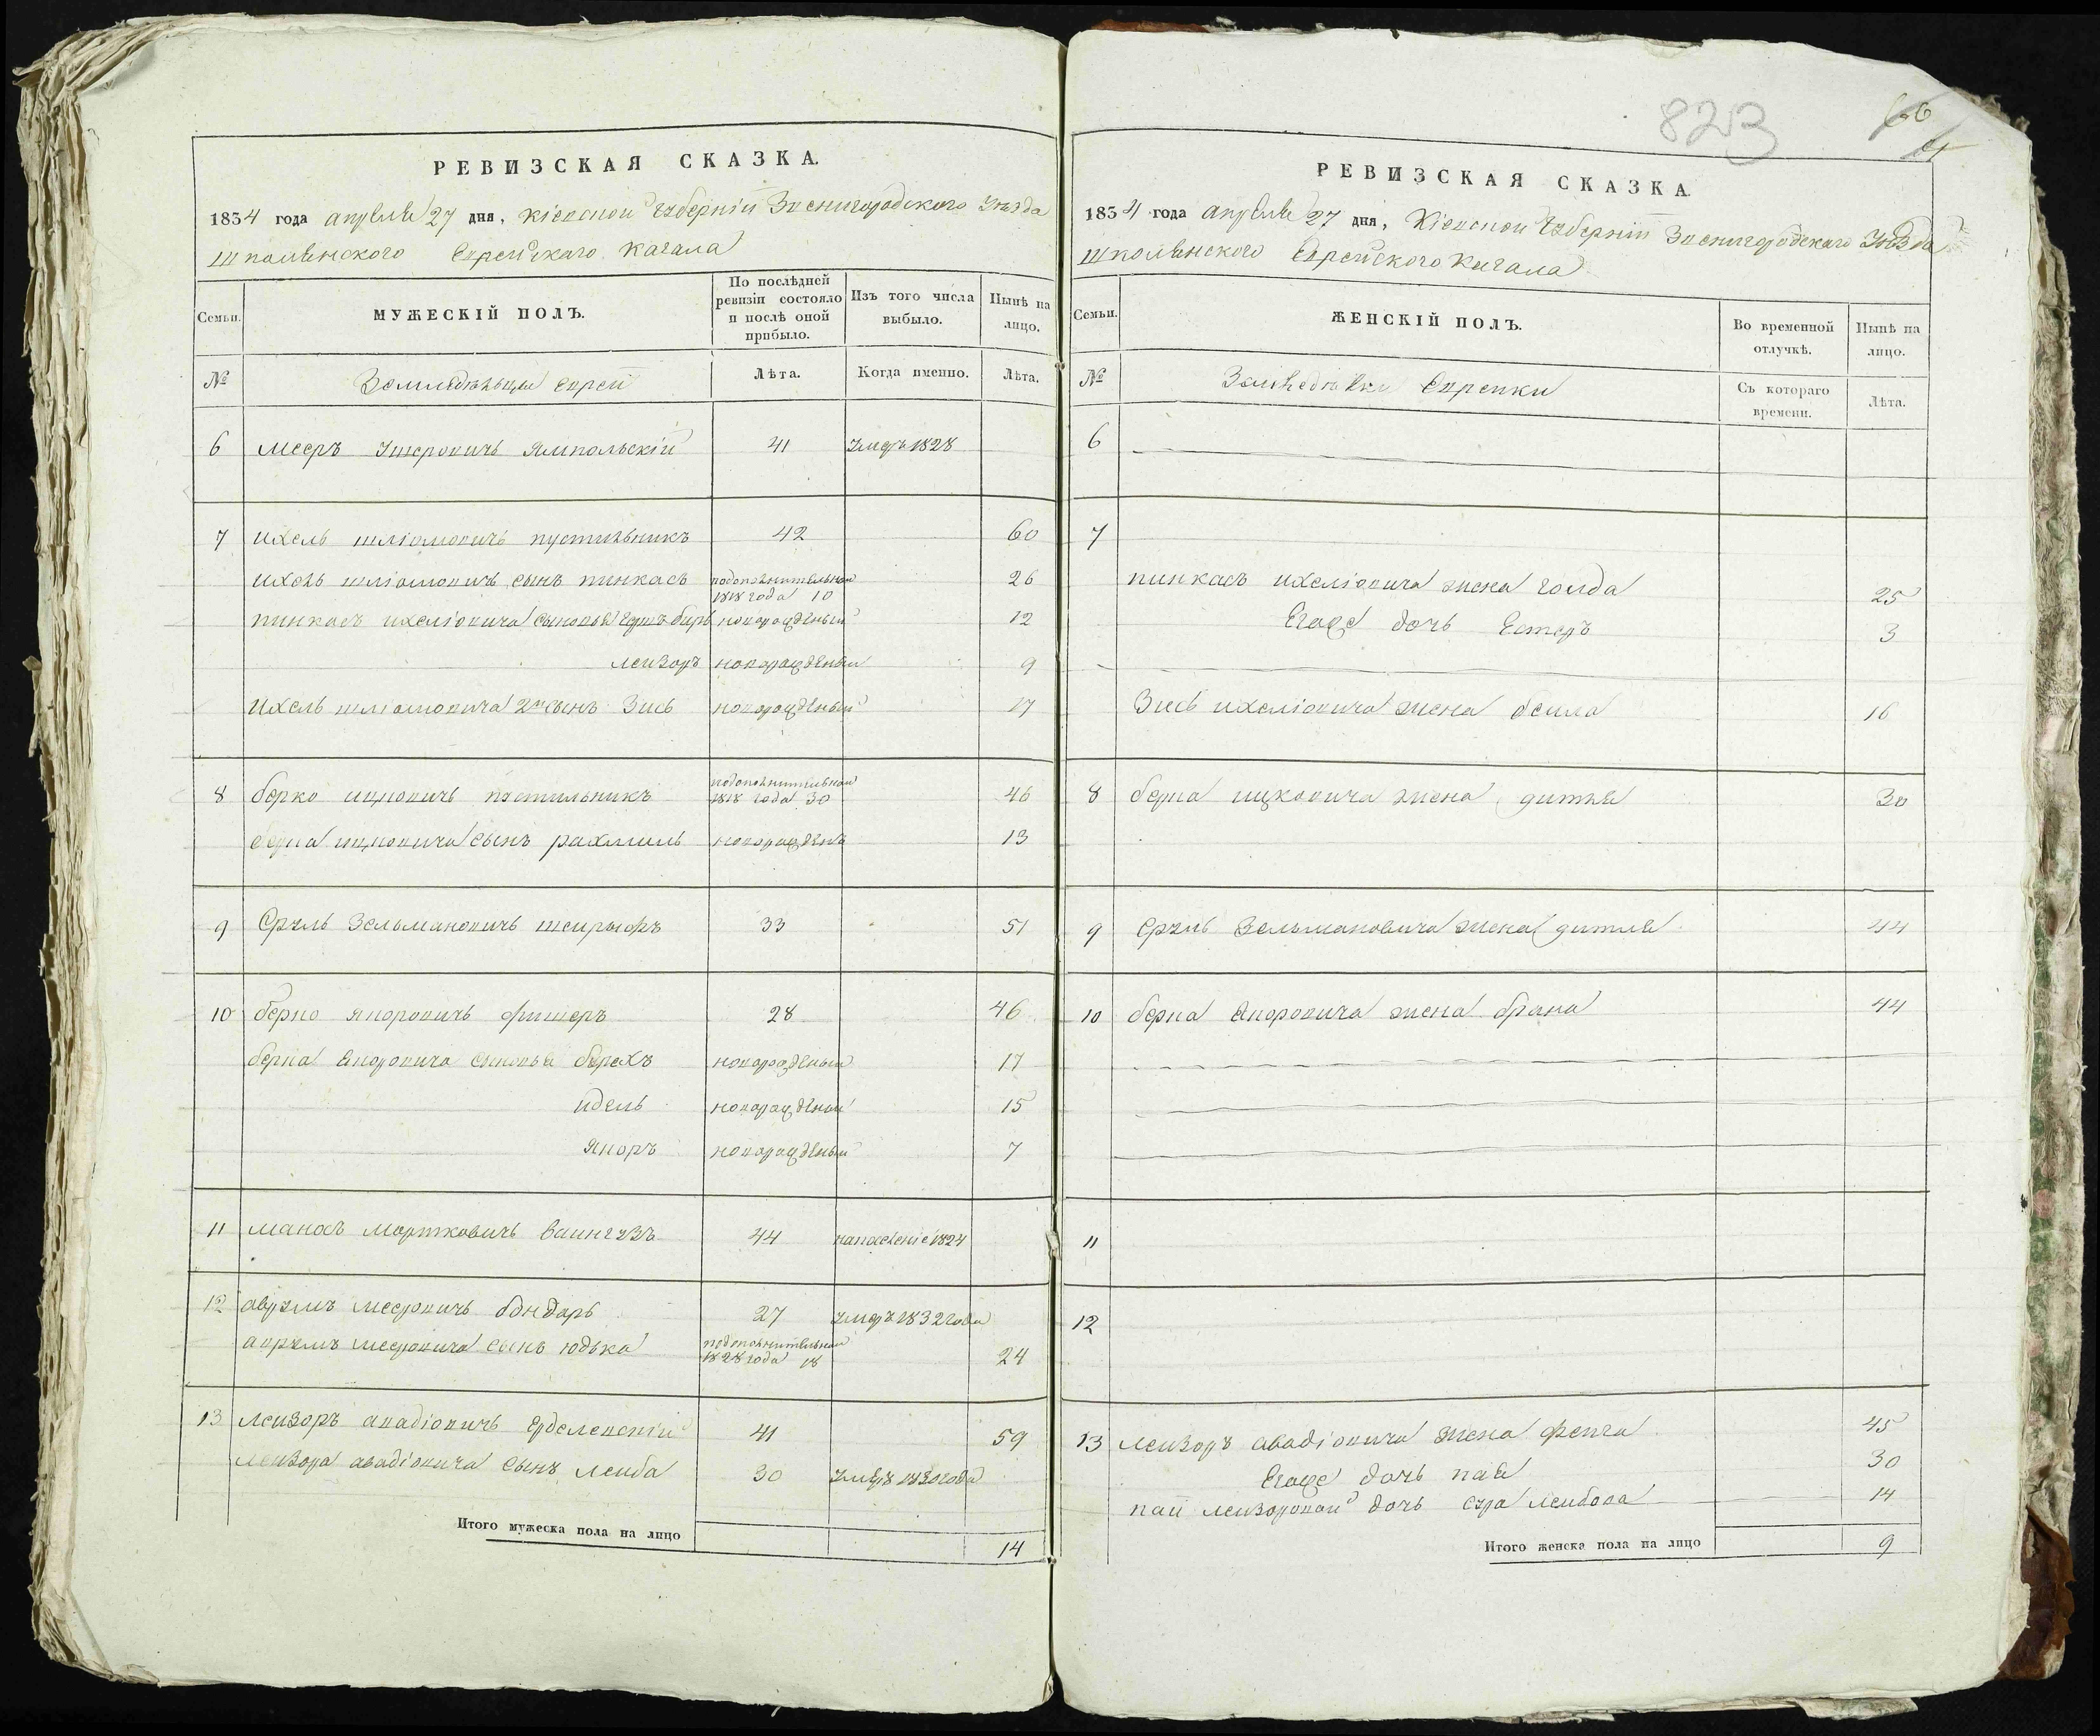 РЕВИЗСКАЯ СКАЗКА.
1834 года апреля 27 дня, Кіевской Губерніи Звенигородского Уезда
Шполянского Еврейского Кагала
Семьи.
МУЖЕСКІЙ ПОЛЪ.
По послѣдней ревизіи состояло и послѣ оной прибыло.
Изъ того числа выбыло.
Нынѣ на лицо.
№
Земледельцы Евреи
Лѣта.
Когда именно.
Лѣта.
6 Мееръ Ушеровичъ Ямпольскій 41 умеръ 1828
7 Ихель Шліомовичъ Пустильникъ 42 60
Ихель Шліомовичъ сынъ Пинкасъ подополнительной 1818 года 10 26
Пинкасъ Ихеліовича сыновья Гершъ Беръ новорожденый 12
Лейзоръ новорожденый 9
Ихель Шліомовича 2й сынъ Зись новорожденый 17
8 Берко Ицковичъ Пустильникъ подополнительной 1818 года 30 46
Берка Ицковича сынъ Рахмиль новорожденъ 13
9 Сруль Зельмановичъ 33 51
10 Берко Якоровичъ Фишеръ 28 46
Берка Якоровича сыновья Берахъ новорожденый 17
Идель новорожденый 15
Якоръ новорожденый 7
11 Манасъ Мортковичъ Ваингузъ 44 1824
12 Аврумъ Мееровичъ Бондарь 27 умеръ 1832 года
Аврумъ Мееровича сынъ Юдька подополнительной 1828 года 18 24
13 Лейзоръ Авадіовичъ 41 59
Лейзора Авадіовича сынъ Лейба 30 умеръ 1830 года
Итого мужеска пола на лицо 14
823
66
РЕВИЗСКАЯ СКАЗКА.
1834 года апреля 27 дня, Кіевской Губерніи Звенигородского Уезда
Шполянского Еврейского Кагала
Семьи.
ЖЕНСКІЙ ПОЛЪ.
Во временной отлучкѣ.
Нынѣ на лицо.
№
Земледелки Еврейки
Съ котораго времени.
Лѣта.
6
7
Пинкасъ Ихеліовича жена Голда 25
Егоже дочь Естеръ 3
Зись Ихеліовича жена Бейла 16
8 Берка Ицковича жена Гитля 30
9 Сруль Зельмановича жена Гитля 44
10 Берка Якоровича жена Брана 44
11
12
13 Лейзоръ Авадіовича жена Фейга 45
Егоже дочь Пая 30
Паи Лейзоровой дочь Сура Лейбова 14
Итого женска пола на лицо 9